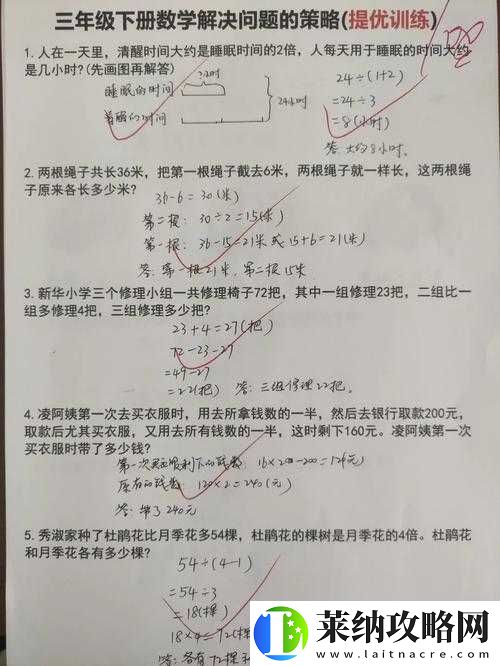 三年级下册数学解决问题的策略(提优训练)
1. 人在一天里，清醒时间大约是睡眠时间的2倍，人每天用于睡眠的时间大约
是几小时?(先画图再解答)
睡眠的时间
清醒的时间
24小时
24÷(1+2)
=24÷3
=8(小时)
答: 大约8小时。
2. 两根绳子共长36米，把第一根绳子截去6米，两根绳子就一样长，这两根绳
子原来各长多少米?
36-6=30(米)
第二根: 30÷2=15(米)
第一根: 36-15=21米 或 15+6=21(米)
答: 第一根21米, 第二根15米
3. 新华小学三个修理小组一共修理椅子72把，其中一组修理23把，二组比一
组多修理4把，三组修理多少把?
23+4=27(把)
72-23-27
=49-27
=22(把) 答: 三组修理22把。
4. 凌阿姨第一次去买衣服时，用去所拿钱数的一半，然后去银行取款200元，
取款后尤其买衣服，又用去所有钱数的一半，这时剩下160元。凌阿姨第一次
买衣服时带了多少钱?
原有的钱数: 120×2=240(元)
答: 带了240元
5. 秀淑家种了杜鹃花比月季花多54棵，杜鹃花的棵树是月季花的4倍。杜鹃花
和月季花各有多少棵?
54÷(4-1)
=54÷3
=18(棵)
18×4=72(棵
答: 各有72棵
莱纳攻略网
www.laitnacre.com